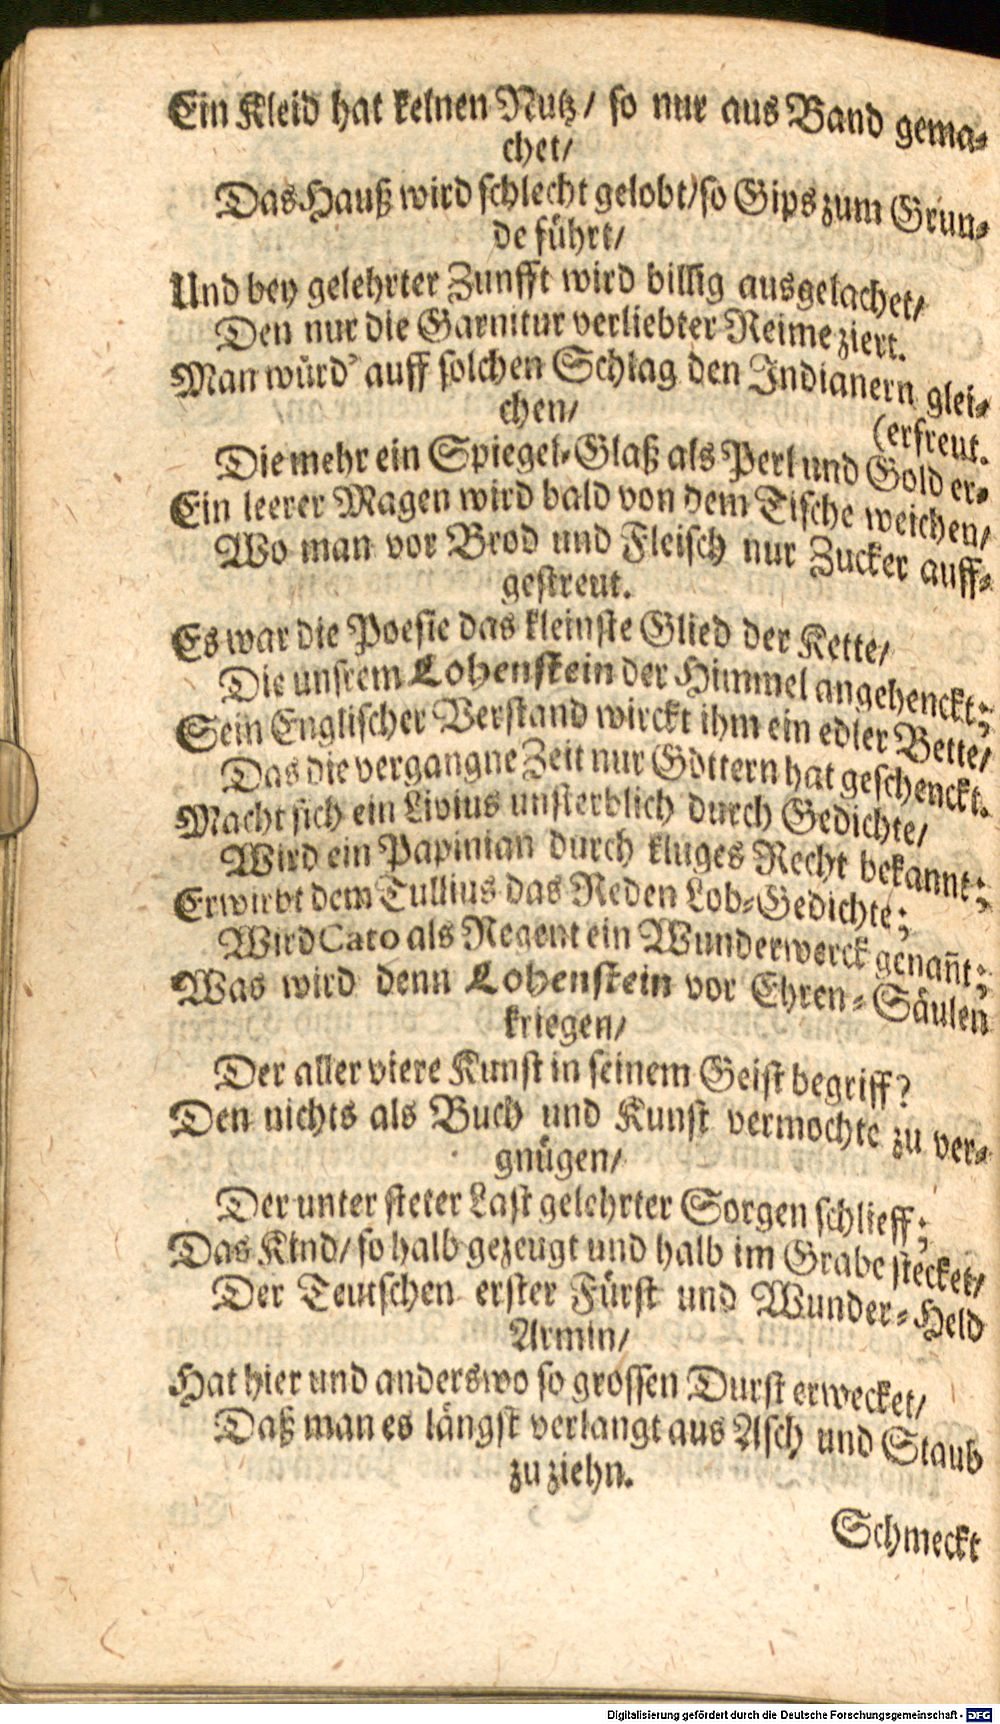 Ein Kleid hat keinen Nutz/ so nur aus Band gema-
chet/
Das Hauß wird schlecht gelobt/ so Gips zum Grun-
de führt/
Und bey gelehrter Zunfft wird billig ausgelachet/
Den nur die Garnitur verliebter Reime ziert.
Man würd' auff solchen Schlag den Indianern glei-
chen/
(erfreut.
Die mehr ein Spiegel-Glaß als Perl und Gold er-
Ein leerer Magen wird bald von dem Tische weichen/
Wo man vor Brod und Fleisch nur Zucker auff-
gestreut.
Es war die Poesie das kleinste Glied der Kette/
Die unsrem Lohenstein der Himmel angehenckt;
Sein Englischer Verstand wirckt ihm ein edler Bette/
Das die vergangne Zeit nur Göttern hat geschenckt.
Macht sich ein Livius unsterblich durch Gedichte/
Wird ein Papinian durch kluges Recht bekannt;
Erwirbt dem Tullius das Reden Lob-Gedichte;
Wird Cato als Regent ein Wunderwerck genañt;
Was wird denn Lohenstein vor Ehren-Säulen
kriegen/
Der aller viere Kunst in seinem Geist begriff?
Den nichts als Buch und Kunst vermochte zu ver-
gnügen/
Der unter steter Last gelehrter Sorgen schlieff;
Das Kind/ so halb gezeugt und halb im Grabe stecket/
Der Teutschen erster Fürst und Wunder-Held
Armin/
Hat hier und anderswo so grossen Durst erwecket/
Daß man es längst verlangt aus Asch und Staub
zu ziehn.
Schmeckt
Digitalisierung gefördert durch die Deutsche Forschungsgemeinschaft - DFG